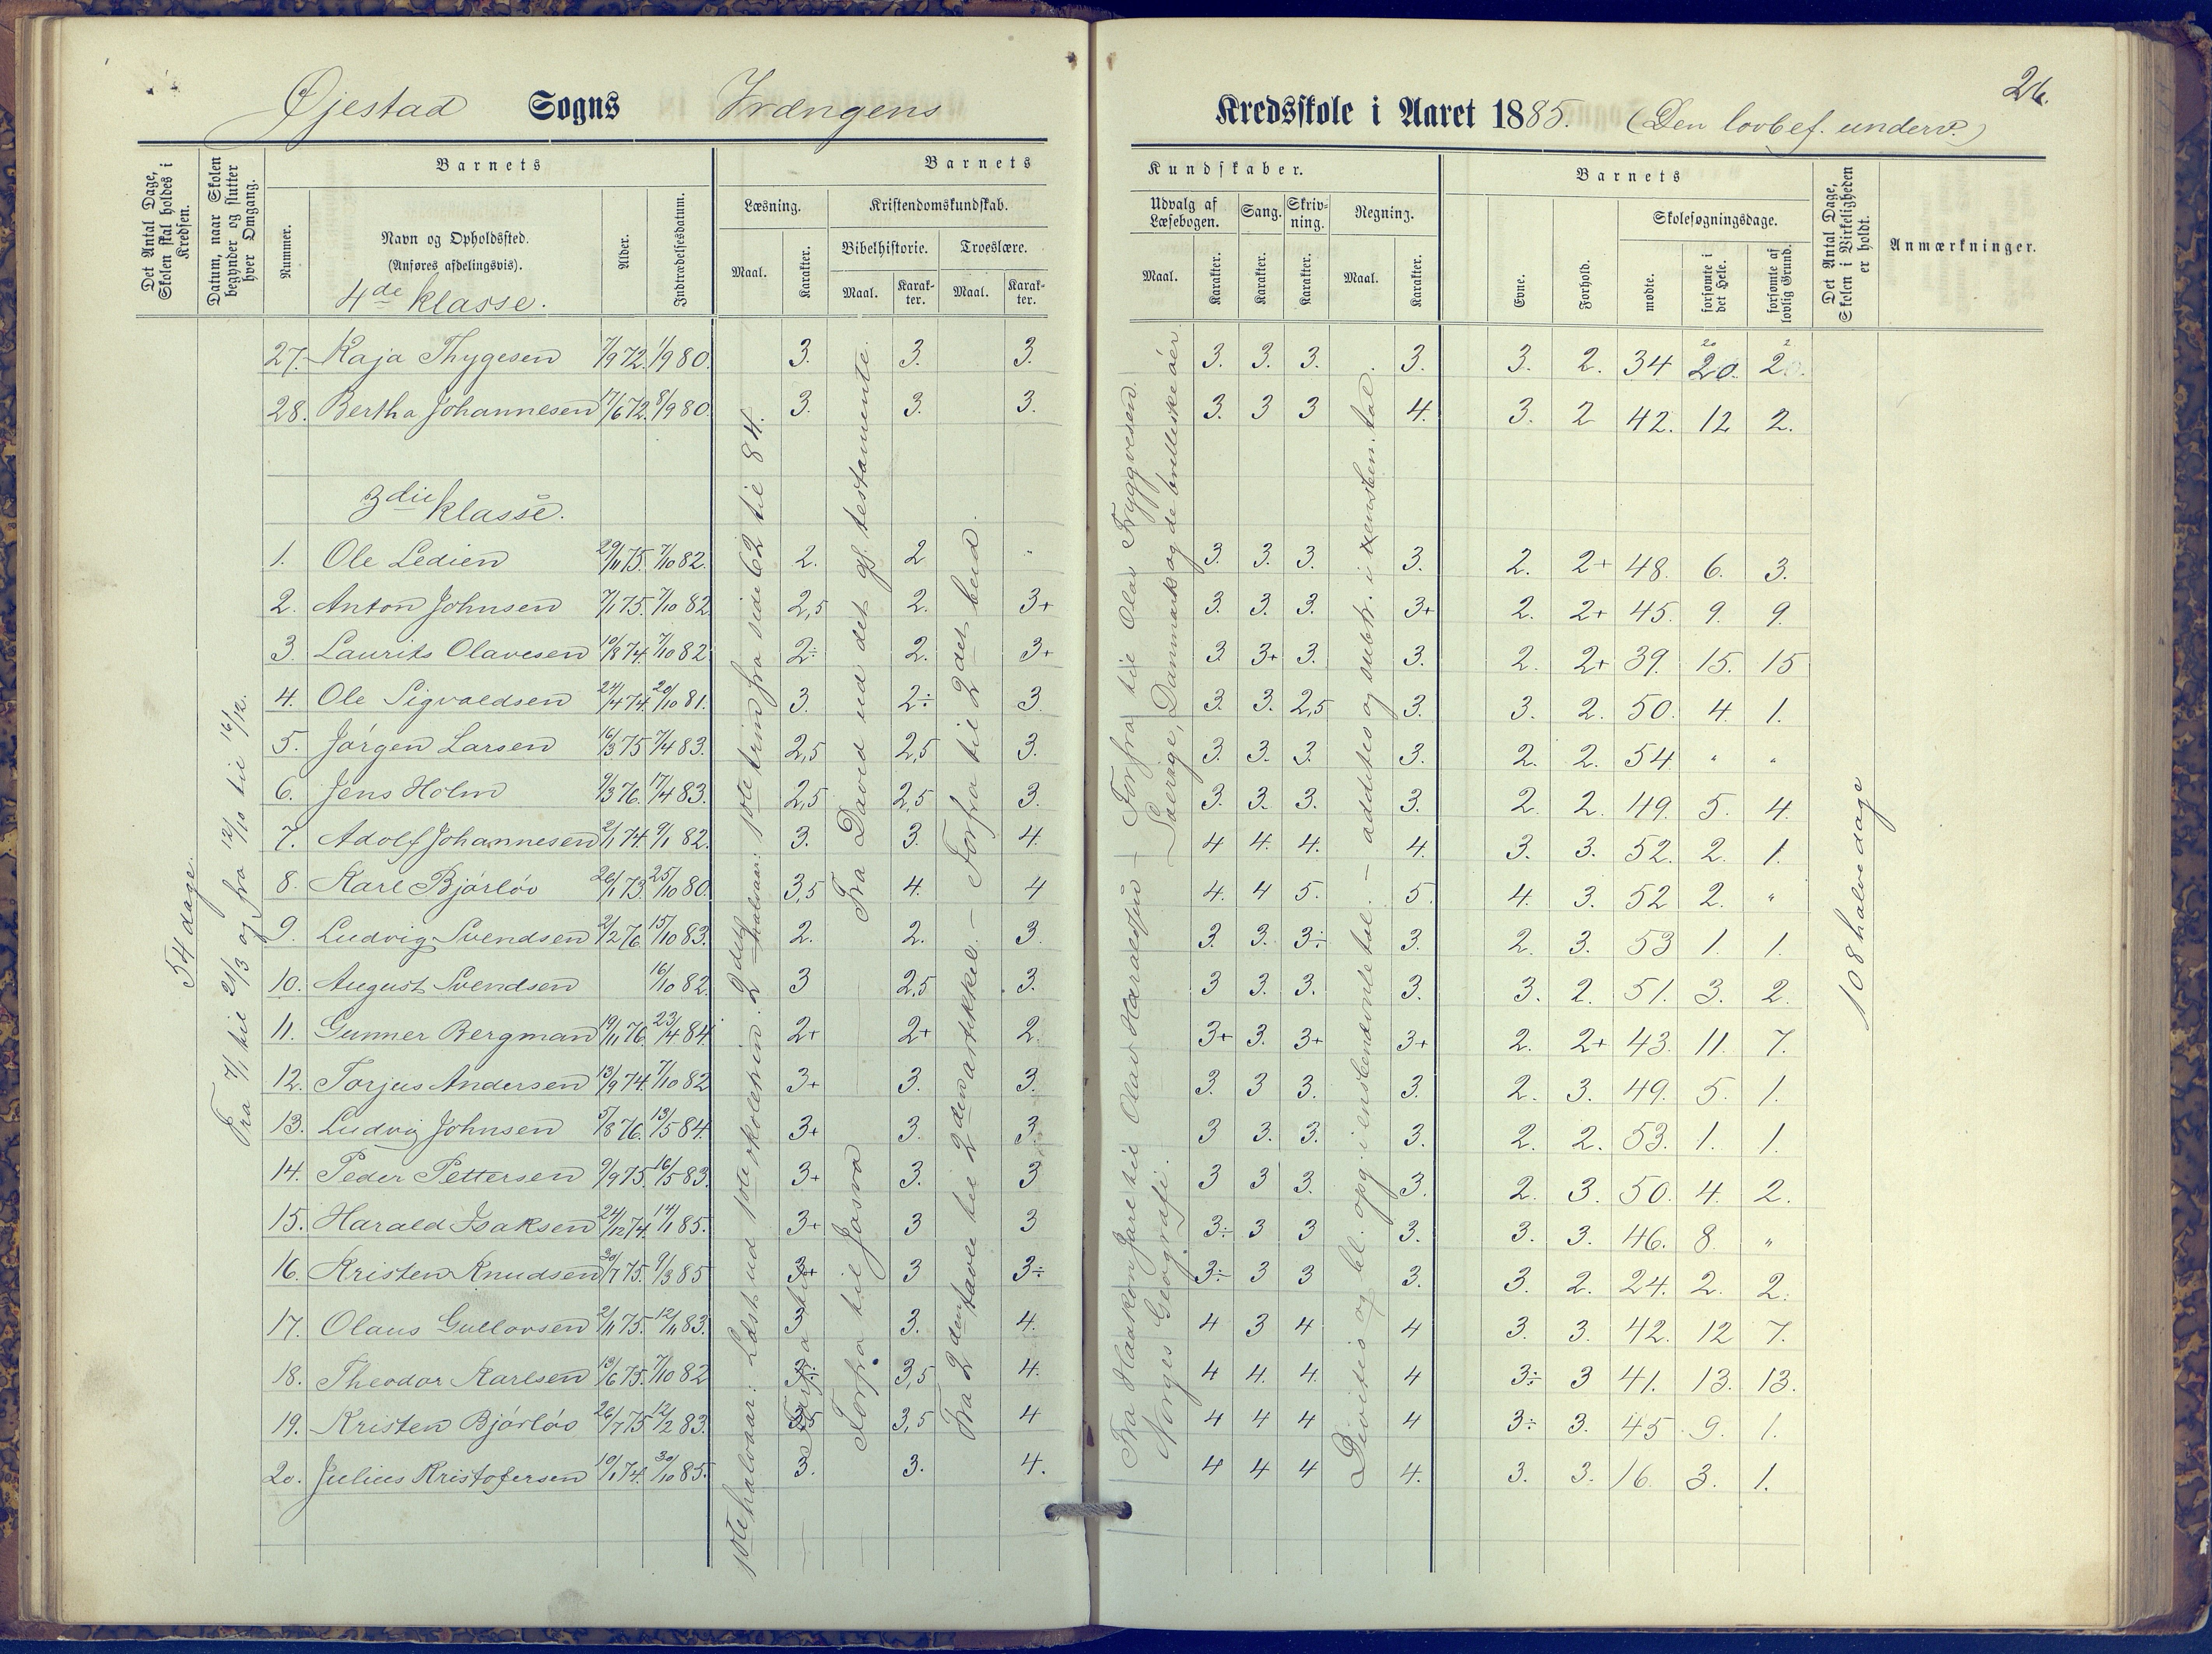 26.
Øjestad Sogns Vrængens Kredsskole i Aaret 1885. (Den lovbef. underv.)
Det Antal Dage, Skolen skal holdes i Kredsen.
Datum, naar Skolen begynder og slutter hver Omgang.
Barnets
Nummer.
Navn og Opholdssted.
(Anføres afdelingsvis).
Alder.
Indtrædelsesdatum.
Barnets Kundskaber.
Læsning.
Maal.
Karakter.
Kristendomskundskab.
Bibelhistorie.
Maal.
Karakter.
Troeslære.
Maal.
Karakter.
Udvalg af Læsebogen.
Maal.
Karakter.
Sang.
Karakter.
Skrivning.
Karakter.
Regning.
Maal.
Karakter.
Barnets
Evne.
Forhold.
Skolesøgningsdage.
mødte.
forsømte i det Hele.
forsømte af lovlig Grund.
Det Antal Dage, Skolen i Virkeligheden er holdt.
Anmærkninger.
4de klasse.
27. Kaja Thygesen 7/9 72. 1/9 80. 3. 3. 3. 3. 3. 3. 3. 3. 2. 34 20. 2
28. Bertha Johannesen 17/6 72. 8/9 80. 3. 3. 3. 3. 3 3 4. 3. 2 42. 12 2.
3die klasse.
1. Ole Ledien 29/11 75. 7/10 82. 2. 2 " 3. 3. 3. 3. 2. 2+ 48. 6. 3.
2. Anton Johnsen 7/1 75. 7/10 82 2,5 2. 3+ 3. 3. 3. 3+ 2. 2+ 45. 9. 9.
3. Laurits Olavesen 10/8 74. 7/10 82 2÷ 2. 3+ 3. 3+ 3. 3. 2. 2+ 39. 15. 15
4. Ole Sigvaldsen 24/4 74. 20/10 81. 3. 2÷ 3. 3. 3. 2,5 3. 3. 2. 50. 4. 1.
5. Jørgen Larsen 16/3 75 7/4 83. 2,5 2,5 3. 3. 3. 3. 3. 2. 2. 54 " "
6. Jens Holm 9/3 76. 17/4 83. 2,5 2,5 3. 3. 3. 3. 3. 2. 2. 49. 5. 4.
7. Adolf Johannesen 2/1 74. 9/1 82. 3. 3. 4. 4 4. 4. 4. 3. 3. 52. 2. 1.
8. Karl Bjørløv 26/1 73. 25/10 80. 3,5 4. 4 4. 4 5. 5. 4. 3. 52 2. "
9. Ludvig Svendsen 2/2 76. 15/10 83. 2. 2. 3. 3. 3. 3÷ 3. 2. 3. 53 1. 1.
10. August Svendsen 16/10 82. 3 2,5 3. 3 3. 3. 3. 3. 2. 51. 3. 2.
11. Gunner Bergman 19/11 76. 23/4 84. 2+ 2+ 2. 3+ 3. 3+ 3+ 2. 2+ 43. 11. 7.
12. Torjus Andersen 13/9 74. 7/10 82 3+ 3. 3. 3. 3 3. 3. 2. 3. 49. 5. 1.
13. Ludvig Johnsen 5/8 76. 13/5 84. 3+ 3. 3. 3 3. 3. 3. 2. 2. 53. 1. 1.
14. Peder Pettersen 9/9 75. 16/5 83. 3+ 3. 3 3 3 3. 3. 2. 3. 50. 4. 2.
15. Harald Isaksen 24/12 74. 14/1 85. 3+ 3 3 3÷ 3 3 3. 3. 3. 46. 8. "
16. Kristen Knudsen 30/7 75. 9/3 85 3+ 3 3÷ 3÷ 3 3 3. 3. 2. 24. 2. 2.
17. Olaus Gullovsen 2/11 75. 12/11 83. 3 3. 4. 4 3 4 4 3. 3. 42. 12 7.
18. Theodor Karlsen 13/6 75. 7/10 82 3÷ 3,5 4. 4 4. 4. 4 3÷ 3 41. 13. 13.
19. Kristen Bjørløv 26/7 75 12/2 83. 3,5 3,5 4 4 4 4 4 3÷ 3. 45 9. 1.
20. Julius Kristofersen 10/1 74. 30/10 85. 3. 3. 4. 4 4 4 4. 3. 3. 16. 3. 1.
54 dage.
Fra 7/1 til 21/3 og fra 12/10 til 16/12.
1ste halvaar: Læst ud 1ste skoletrin. 2det halvaar: 1ste trin fra side 62 til 84.
Forfra til Josva
Fra David ud det gl. testamente.
Fra 2den tavle til 2den artikkel. – Forfra til 2det bud.
Fra Haakon Jarl til Olav Haraldsøn – Forfra til Olav Tryggvesøn.
Norges Geografi. – Sverige, Danmark og de brittiske øer.
Divisio og bel. opg. i ensbenævnte tal. – additio og subtr. i uensben. tal.
108 halve dage